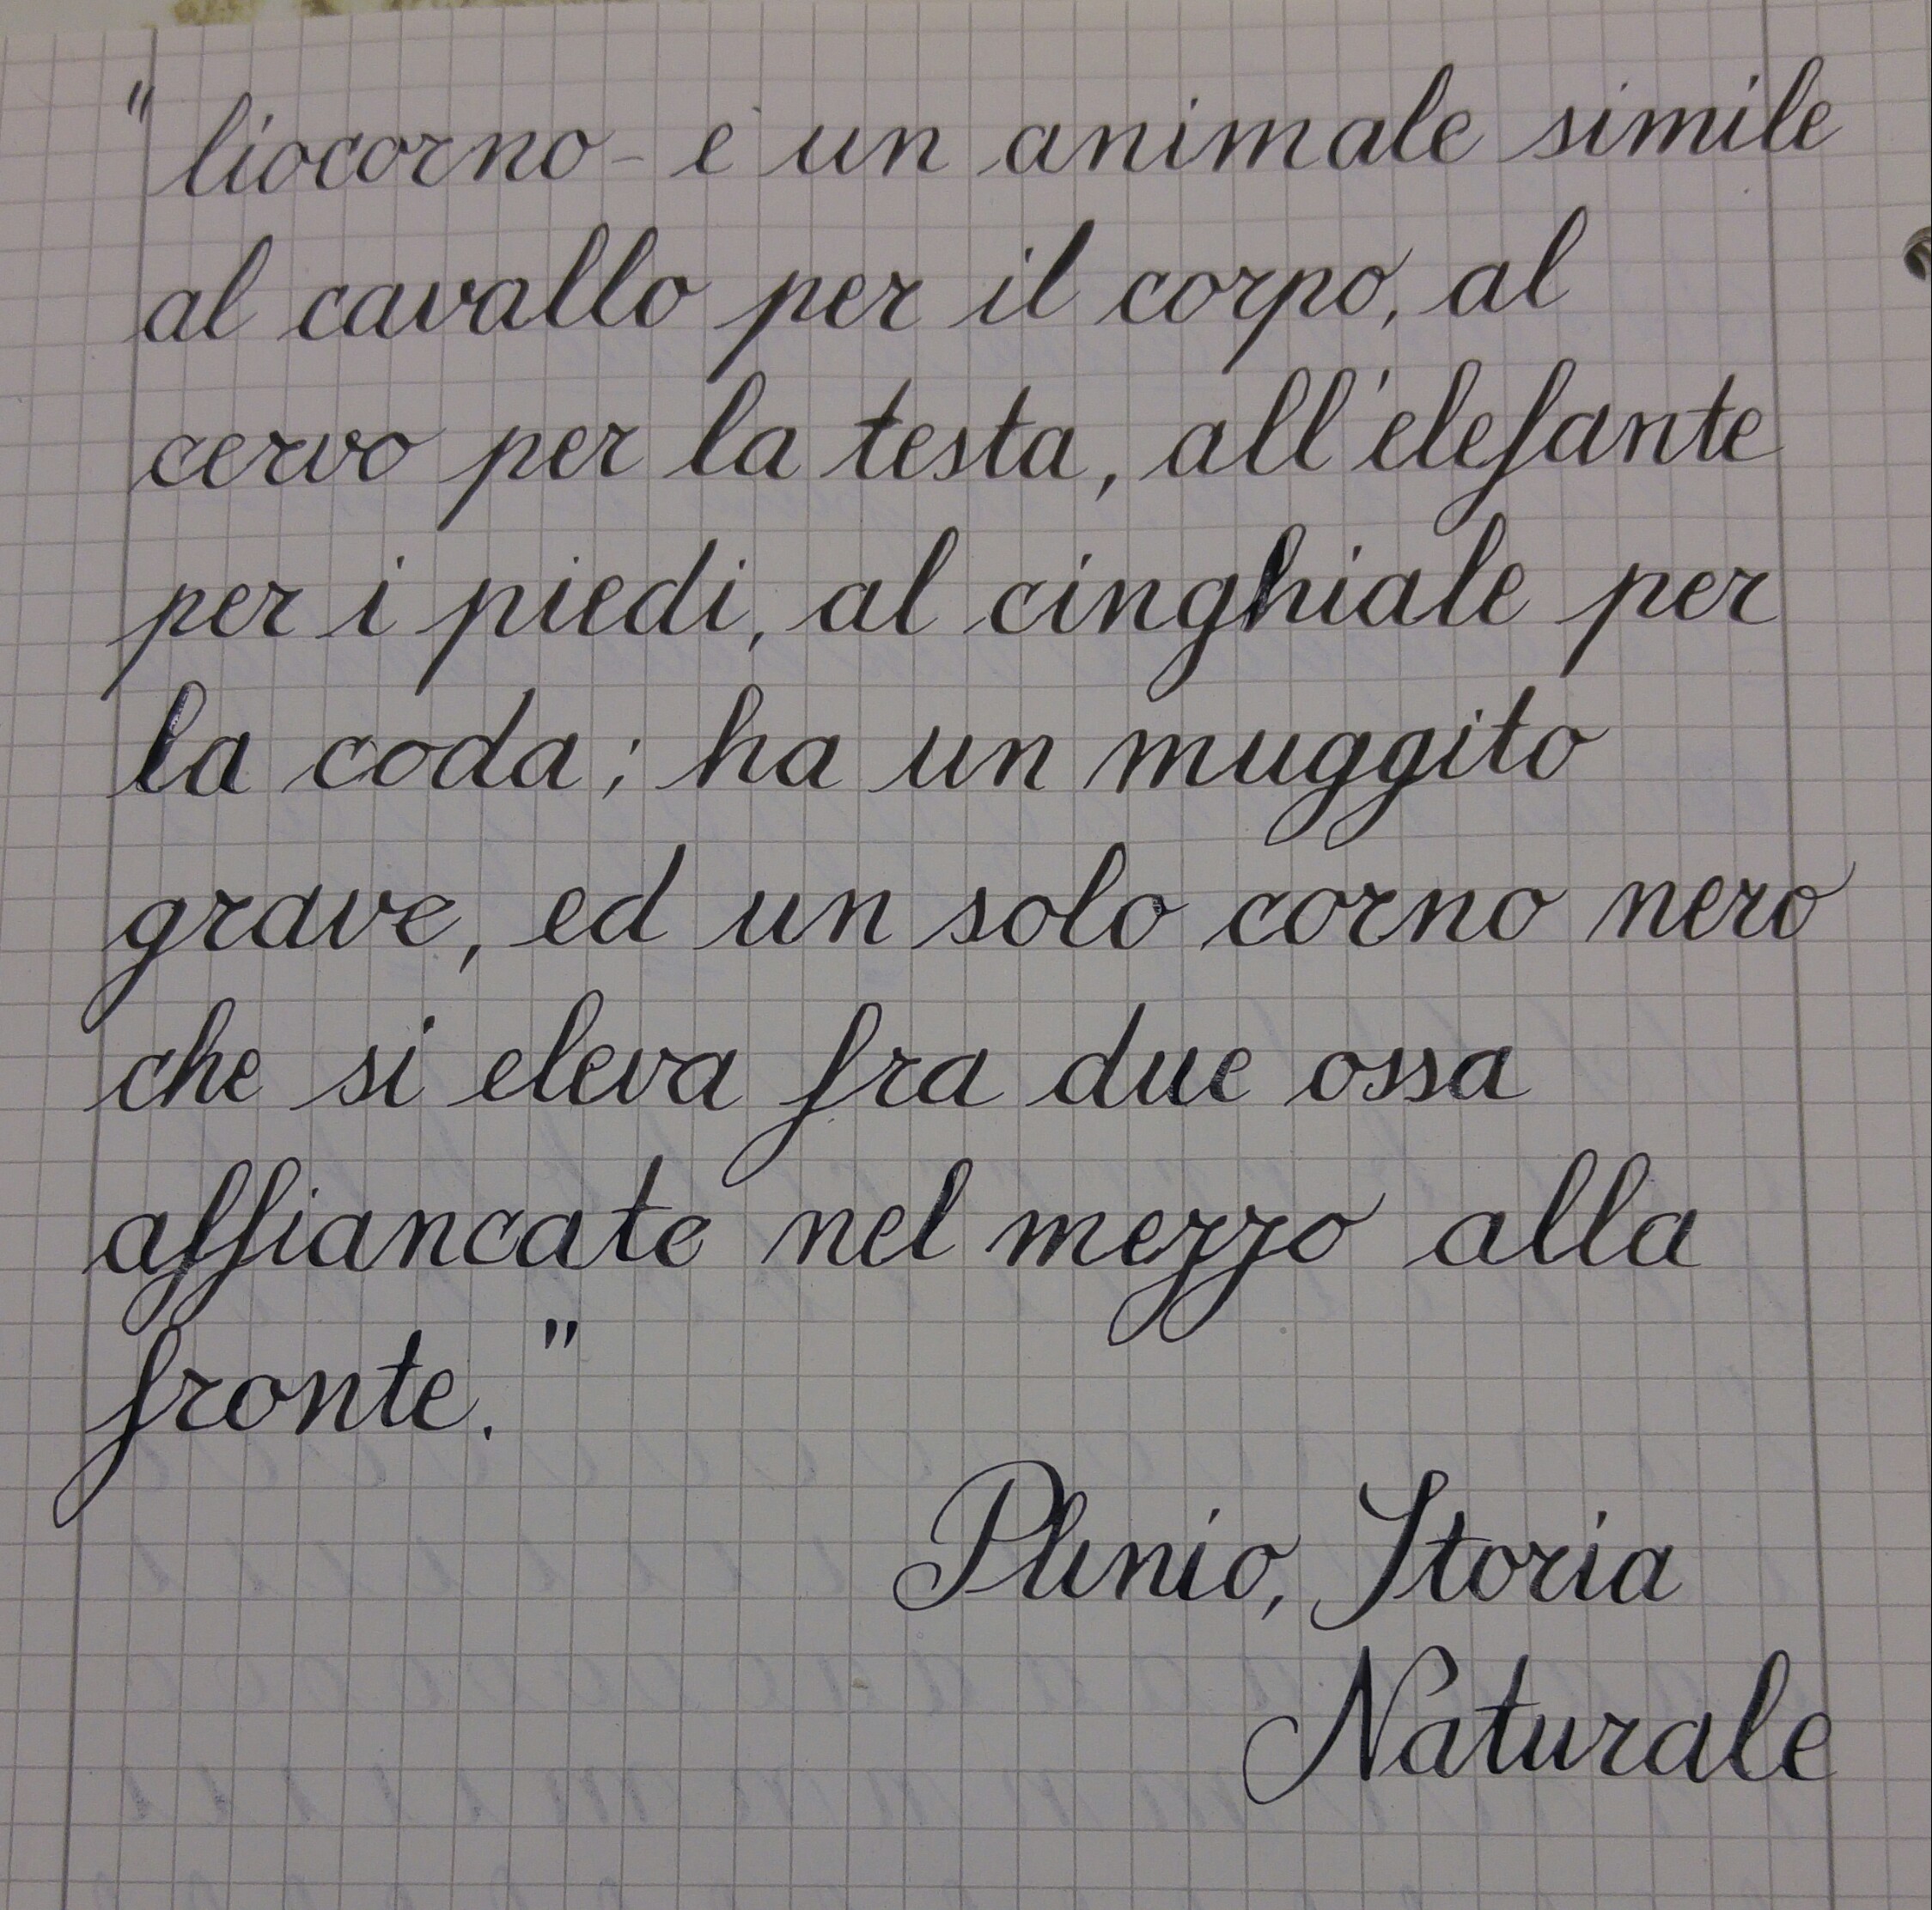 "liocorno - è un animale simile
al cavallo per il corpo, al
cervo per la testa, all'elefante
per i piedi, al cinghiale per
la coda; ha un muggito
grave, ed un solo corno nero
che si eleva fra due ossa
affiancate nel mezzo alla
fronte."
Plinio, Storia
Naturale